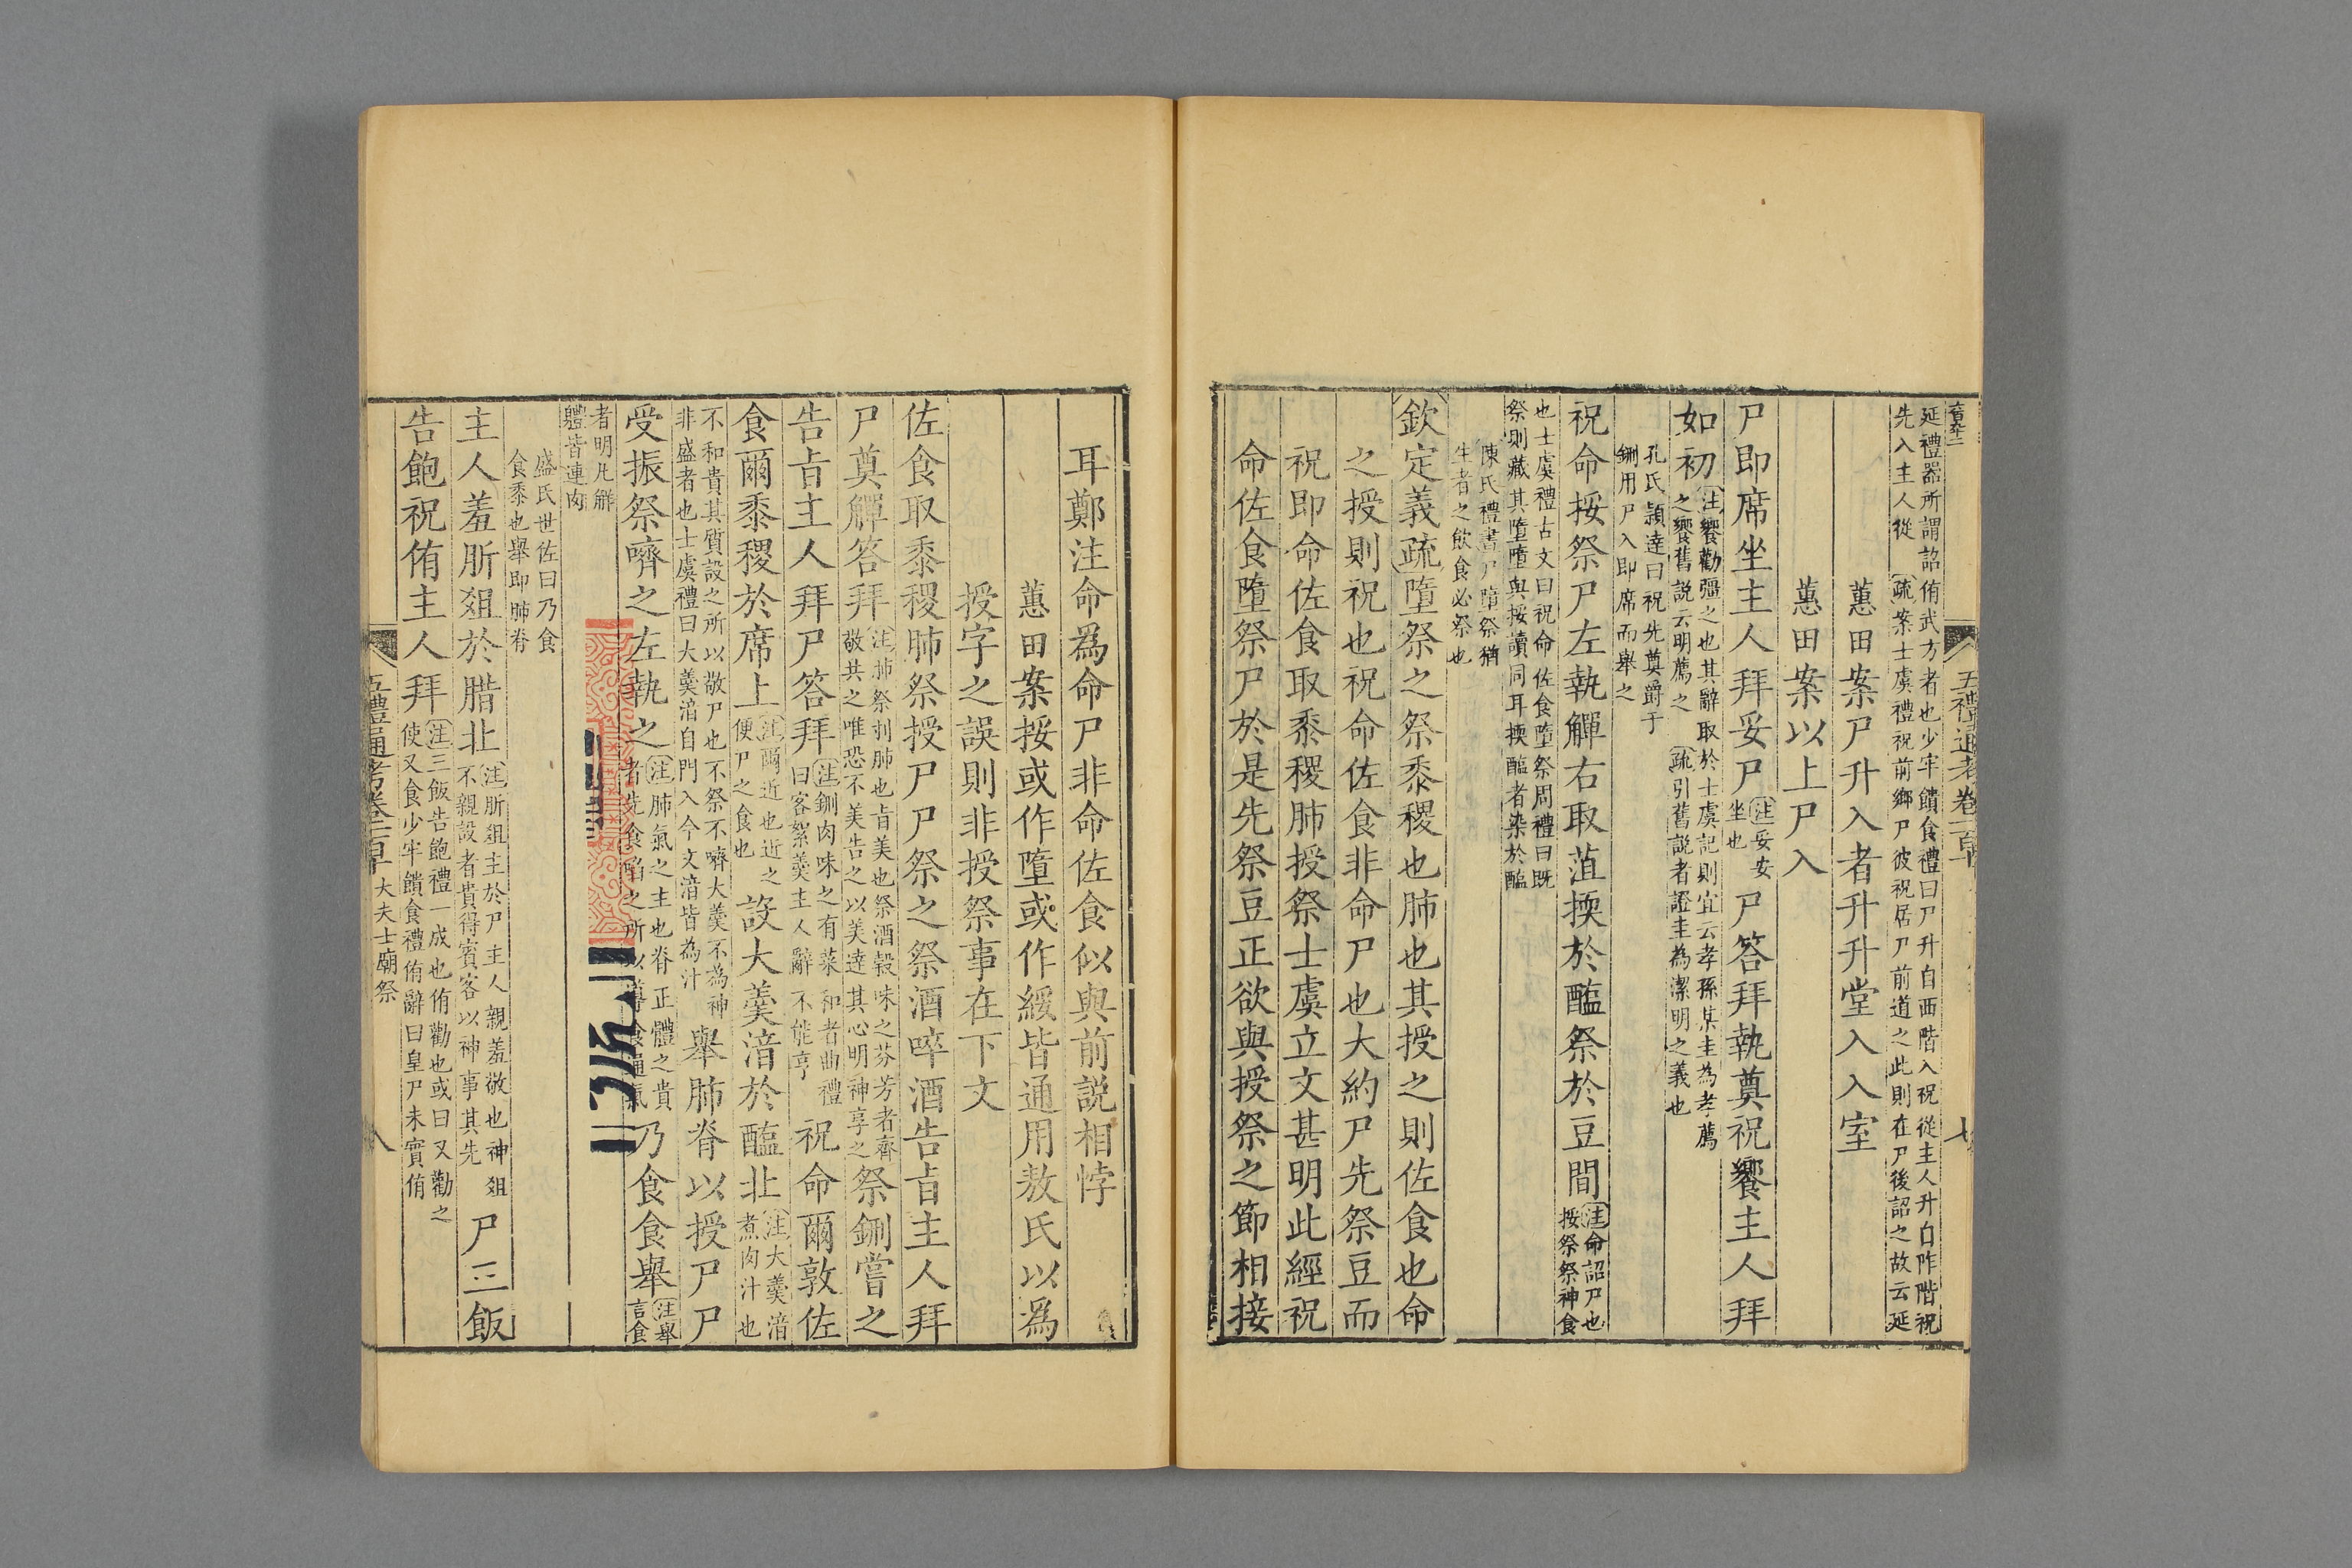 延禮器所謂詔侑武方者也少牢饋食禮曰尸升自西階入祝從主人升自阼階祝
先入主人從 疏案士虞禮祝前鄉尸彼祝居尸前道之此則在尸後詔之故云延
蕙田案尸升入者升升堂入入室
蕙田案以上尸入
尸即席坐主人拜妥尸 注妥安
坐也 尸答拜執奠祝饗主人拜
如初 注饗勸彊之也其辭取於士虞記則宜云孝孫某圭為孝薦
之饗舊說云明薦之 疏引舊說者證圭為潔明之義也
孔氏穎達曰祝先奠爵于
鉶用尸入即席而舉之
祝命挼祭尸左執觶右取菹㨎於醢祭於豆間 注命詔尸也
挼祭祭神食
也士虞禮古文曰祝命佐食墮祭周禮曰既
祭則藏其墮墮與挼讀同耳㨎醢者染於醢
陳氏禮書尸墮祭猶
生者之飲食必祭也
欽定義疏墮祭之祭黍稷也肺也其授之則佐食也命
之授則祝也祝命佐食非命尸也大約尸先祭豆而
祝即命佐食取黍稷肺授祭士虞立文甚明此經祝
命佐食墮祭尸於是先祭豆正欲與授祭之節相接
五禮通考卷一百十
七
耳鄭注命爲命尸非命佐食似與前説相悖
蕙田案挼或作墮或作綏皆通用敖氏以爲
授字之誤則非授祭事在下文
佐食取黍稷肺祭授尸尸祭之祭酒啐酒告旨主人拜
尸奠觶答拜 注肺祭刌肺也旨美也祭酒穀味之芬芳者齊
敬共之唯恐不美告之以美達其心明神享之 祭鉶嘗之
告旨主人拜尸答拜 注鉶肉味之有菜和者曲禮
曰客絮羹主人辭不能亨 祝命爾敦佐
食爾黍稷於席上 注爾近也近之
便尸之食也 設大羹湆於醢北 注大羹湆
煮肉汁也
不和貴其質設之所以敬尸也不祭不嚌大羹不為神
非盛者也士虞禮曰大羹湆自門入今文湆皆為汁 舉肺脊以授尸尸
受振祭嚌之左執之 注肺氣之主也脊正體之貴
者先食啗之所以導食通氣 乃食食舉 注舉
言食
者明凡觧
體皆連肉
盛氏世佐曰乃食
食黍也舉即肺脊
主人羞肵俎於腊北 注肵俎主於尸主人親羞敬也神俎
不親設者貴得賓客以神事其先 尸三飯
告飽祝侑主人拜 注三飯告飽禮一成也侑勸也或曰又勸之
使又食少牢饋食禮侑辭曰皇尸未實侑
五禮通考卷一百十 大夫士廟祭
八